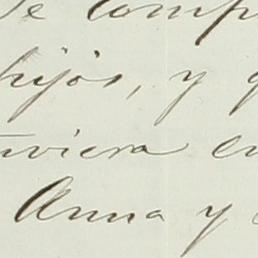 de comp
hijos, y q
uviera en
Anna y